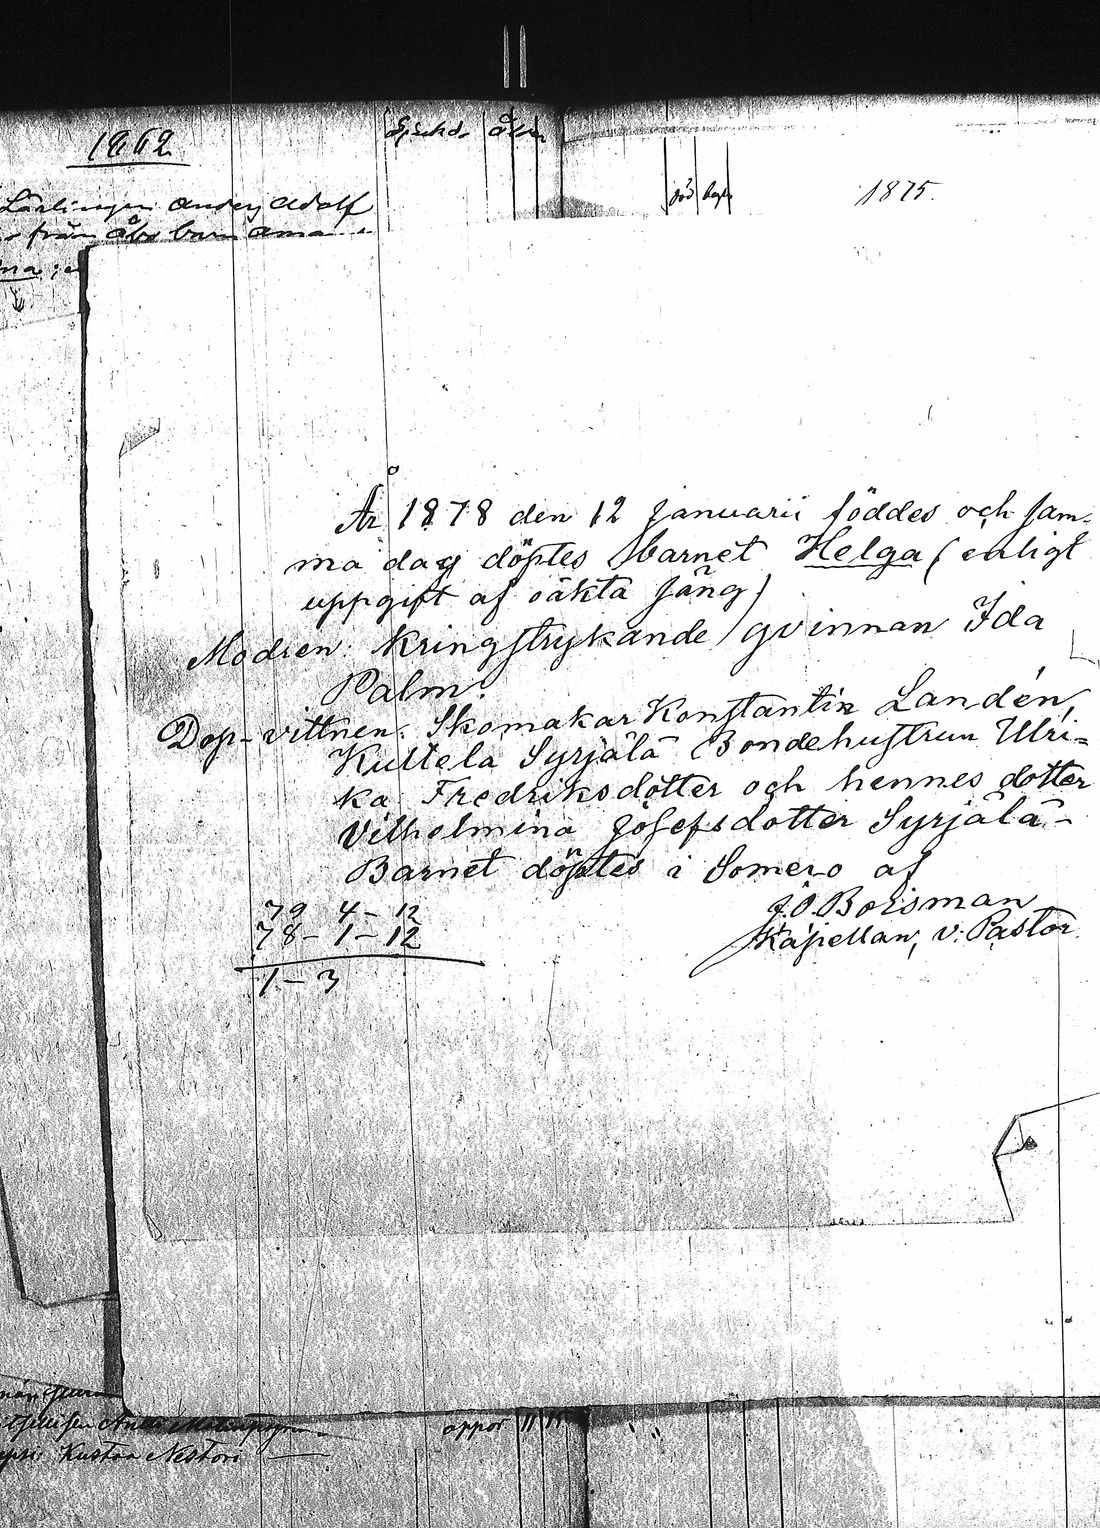 1862
Sjukd. Åld.
född Dag
1875.
Lärlingen Anders Adolf
från Åbo barn
År 1878 den 12 Januarii föddes och sam-
ma dag döptes barnet Helga (enligt
uppgift af oäkta säng)
Modren: Kringstrykande qvinnan Ida
Palm.
Dop-vittnen: Skomakar Konstantin Landén,
Kultela Syrjälä Bondehustrun Ulri-
ka Fredriksdotter och hennes dotter
Vilhelmina Josefsdotter Syrjälä-
Barnet döptes i Somero af
J.O. Boisman
Kapellan, v. Pastor.
79 4-12
78-1-12
1-3
Kustaa Nestori